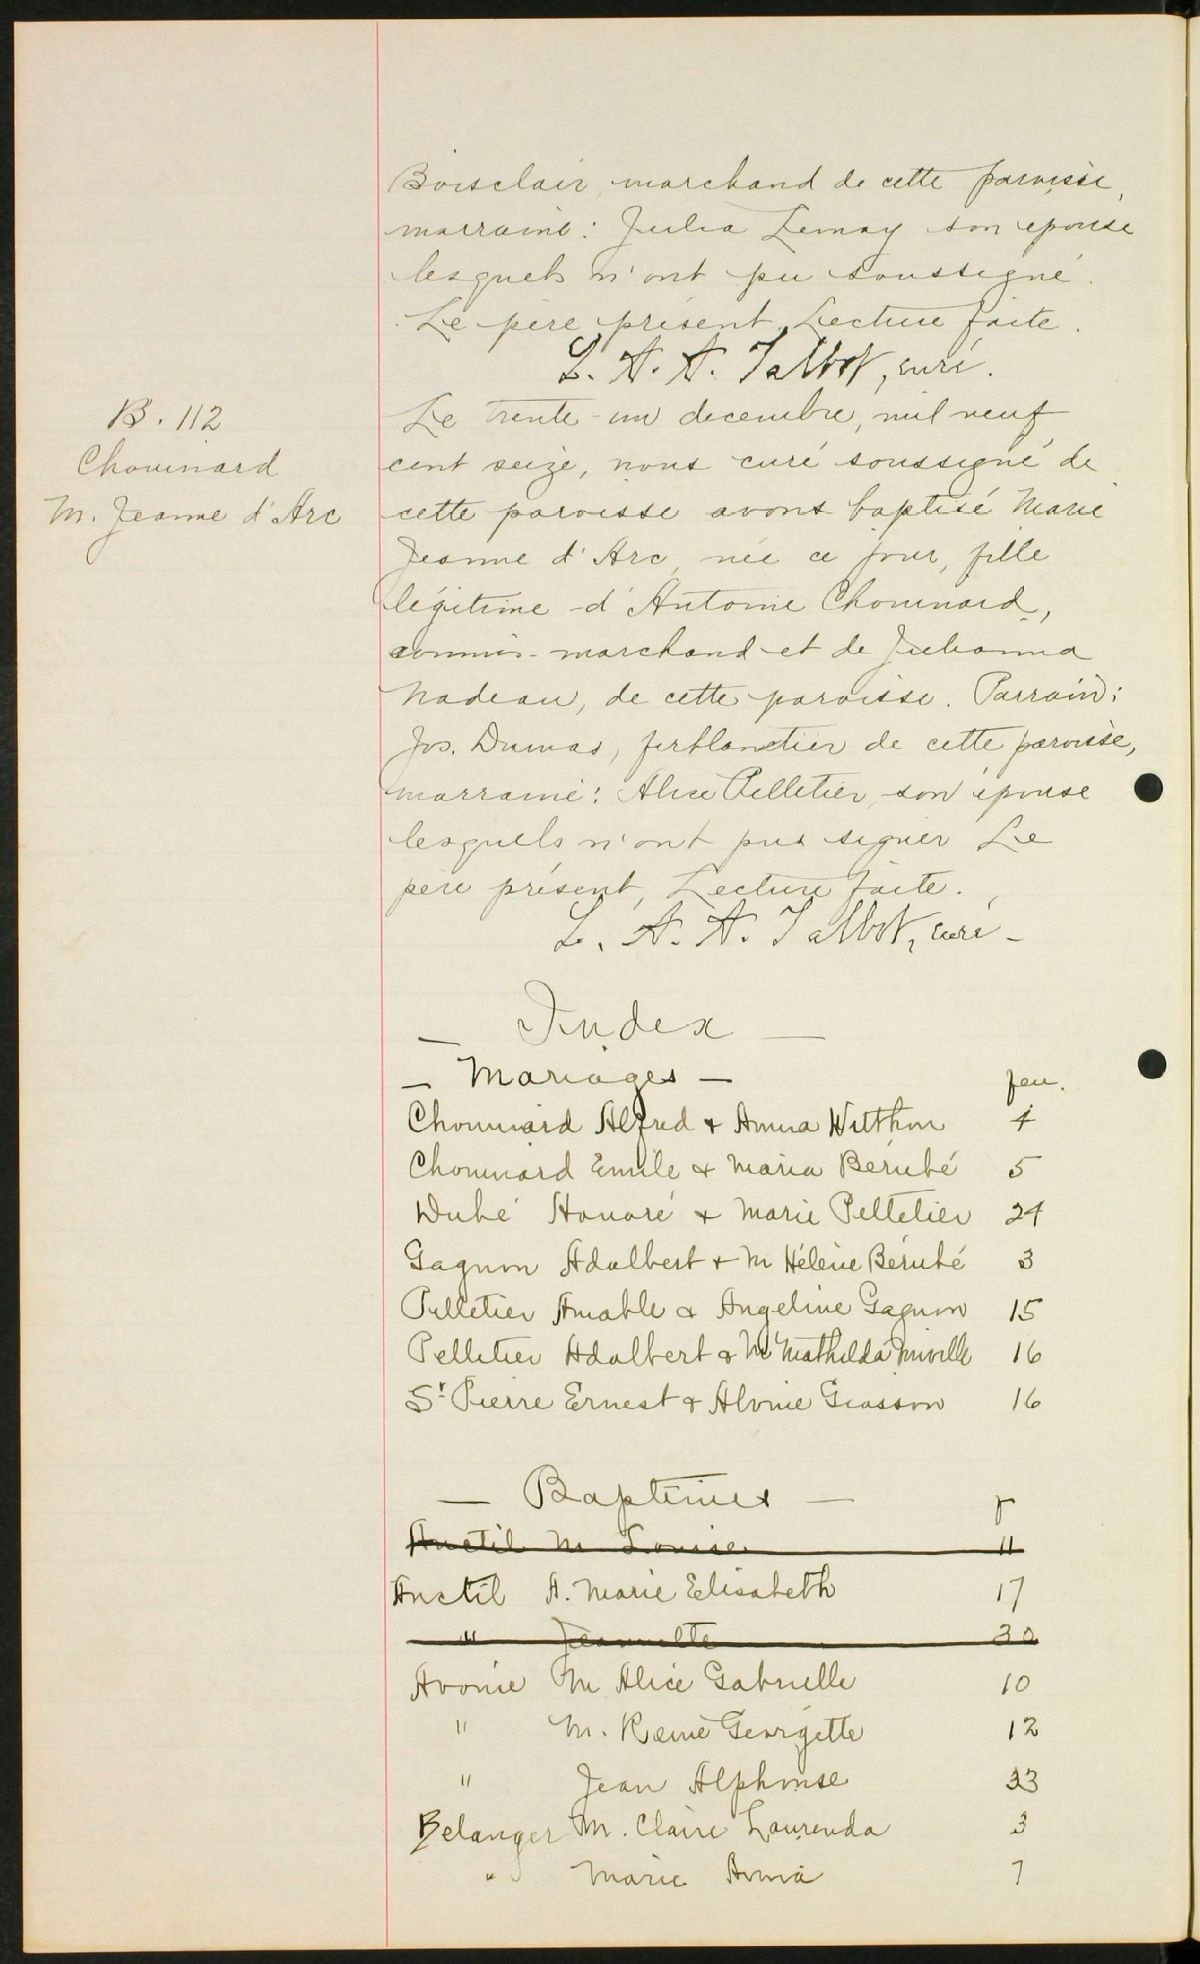 Boisclair, marchand de cette paroisse,
marraine: Julia Lemay son epouse
lesquels n'ont pu soussigné.
Le père présent. Lecture faite.
L. A. A. Talbot, curé.
B. 112
Chouinard
M. Jeanne d'Arc
Le trente-un decembre, mil neuf
cent seize, nous curé soussigné de
cette paroisse avons baptisé Marie
Jeanne d'Arc, née ce jour, fille
légitime d'Antoine Chouinard,
commis-marchand et de Julianna
Nadeau, de cette paroisse. Parrain:
Jos. Dumas, ferblantier de cette paroisse,
marraine: Alice Pelletier, son épouse
lesquels n'ont pus signer Le
père présent, Lecture faite.
L. A. A. Talbot, curé -
— Index —
— Mariages — feu.
Chouinard Alfred & Anna Witthon 4
Chouinard Emile & Maria Bérubé 5
Dubé Honoré & Marie Pelletier 24
Gagnon Adalbert & M Hélène Bérubé 3
Pelletier Amable & Angeline Gagnon 15
Pelletier Adalbert & M Mathilda Miville 16
St Pierre Ernest & Alvine Giasson 16
— Baptêmes — f
Anctil M Louise 11
Anctil A. Marie Elisabeth 17
" Jeannette 32
Avoine M Alice Gabrielle 10
" M. Reine Georgette 12
" Jean Alphonse 33
Belanger M. Claire Laurenda 3
" Marie Anna 7